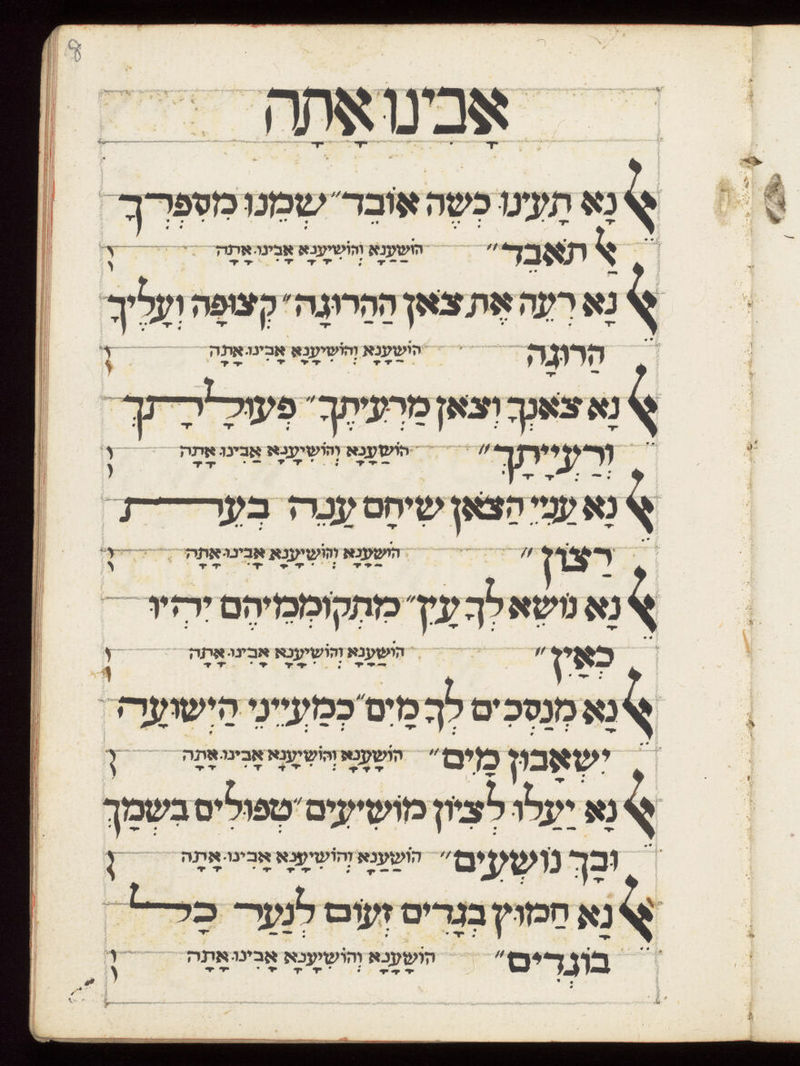 8
אָבִינוּ אָתָה
אֵל נָא תָעִינוּ כְּשֶׂה אוֹבֵד״ שְׁמֵנוּ מִסִפְרְךָ
אַל תֹאבֵד״ הוֹשַׁעֲנָא וְהוֹשִׁיעָנָא אָבִינוּ אָתָה
אֵל נָא רְעֵה אֶת צֹאן הַהֲרוּגָה״ קְצוּפָה וְעָלֶיךָ
הֲרוּגָה הוֹשַׁעֲנָא וְהוֹשִׁיעָנָא אָבִינוּ אָתָה
אֵל נָא צֹאנְךָ וְצֹאן מַרְעִיתֶךָ״ פְּעוּלָתָךְ
וְרַעְיָיתָךְ״ הוֹשַׁעֲנָא וְהוֹשִׁיעָנָא אָבִינוּ אָתָה
אֵל נָא עֲנִיֵי הַצֹאן שִׂיחָם עֲנֵה בְּעֵת
רָצוֹן״ הוֹשַׁעֲנָא וְהוֹשִׁיעָנָא אָבִינוּ אָתָה
אֵל נָא נוֹשְׂאֵ לְךָ עָיִן״ מִתְקוֹמְמֵיהֶם יִהְיוּ
כְאָיִן״ הוֹשַׁעֲנָא וְהוֹשִׁיעָנָא אָבִינוּ אָתָה
אֵל נָא מְנַסְכִים לְךָ מַיִם״ כְּמַעְיְינֵי הַיְשׁוּעָה
יִשְׁאֲבוּן מַיִם״ הוֹשַׁעֲנָא וְהוֹשִׁיעָנָא אָבִינוּ אָתָה
אֵל נָא יַעֲלוּ לְצִיוֹן מוֹשִׁיעִים״ טְפוּלִים בְּשִׁמְךָ
וּבְךָ נוֹשָׁעִים״ הוֹשַׁעֲנָא וְהוֹשִׁיעָנָא אָבִינוּ אָתָה
אֵל נָא חֲמוּץ בְּגָדִים זְעוֹם לְנַעֵר כָּל
בּוֹגְדִים״ הוֹשַׁעֲנָא וְהוֹשִׁיעָנָא אָבִינוּ אָתָה